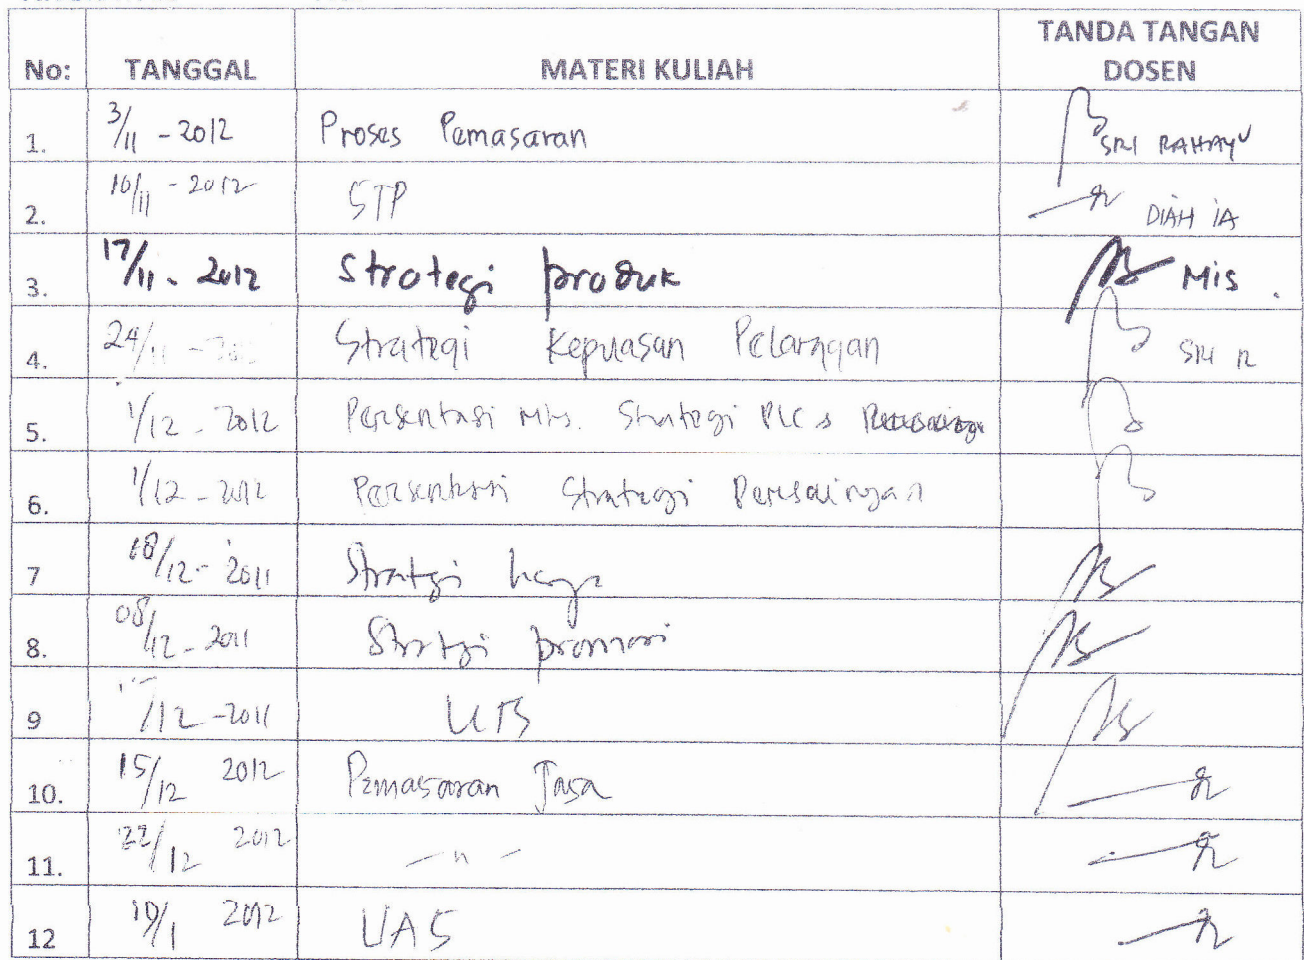 No: TANGGAL MATERI KULIAH TANDA TANGAN DOSEN
1. 3/11 - 2012 Proses Pemasaran SRI RAHAYU
2. 10/11 - 2012 STP DIAH IA
3. 17/11 - 2012 Strategi produk Mis.
4. 24/11 - 2012 Strategi Kepuasan Pelanggan SRI R
5. 1/12 - 2012 Persentasi Mhs. Strategi PLC
6. 1/12 - 2012 Persentasi Strategi Persaingan
7 08/12 - 2011 Strategi harga
8. 08/12 - 2011 Strategi promosi
9 /12 - 2011 UTS
10. 15/12 2012 Pemasaran Jasa
11. 22/12 2012 - " -
12 19/1 2012 UAS